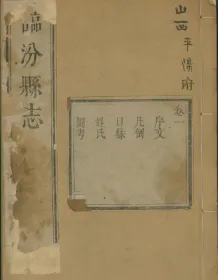 山西平陽府
臨汾縣志
卷一
序文
凡例
目錄
姓氏
圖考